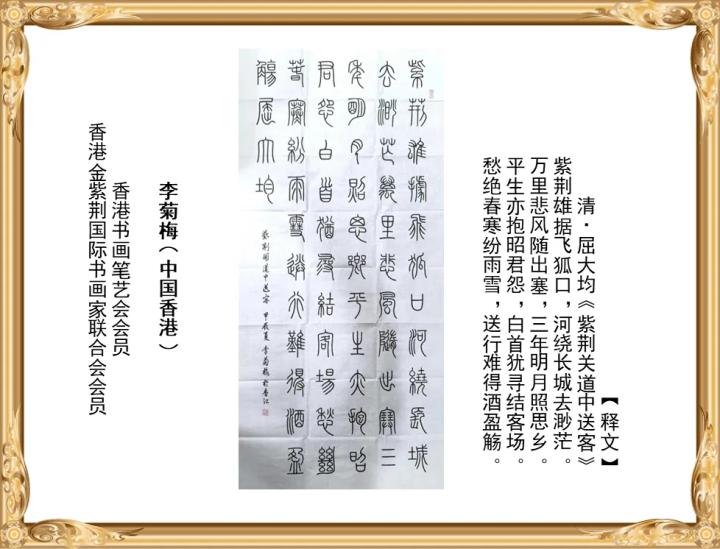 【释文】
清·屈大均《紫荆关道中送客》
紫荆雄据飞狐口，河绕长城去渺茫。
万里悲风随出塞，三年明月照思乡。
平生亦抱昭君怨，白首犹寻结客场。
愁绝春寒纷雨雪，送行难得酒盈觞。
紫荆雄據飛狐口河繞長城
去渺茫萬里悲風隨出塞三
年明月照思鄉平生亦抱昭
君怨白首猶尋結客場愁絕
春寒紛雨雪送行難得酒盈
觴屈大均
紫荆關道中送客 甲辰夏 李菊梅於香江
李菊梅（中国香港）
香港书画笔艺会会员
香港金紫荆国际书画家联合会会员